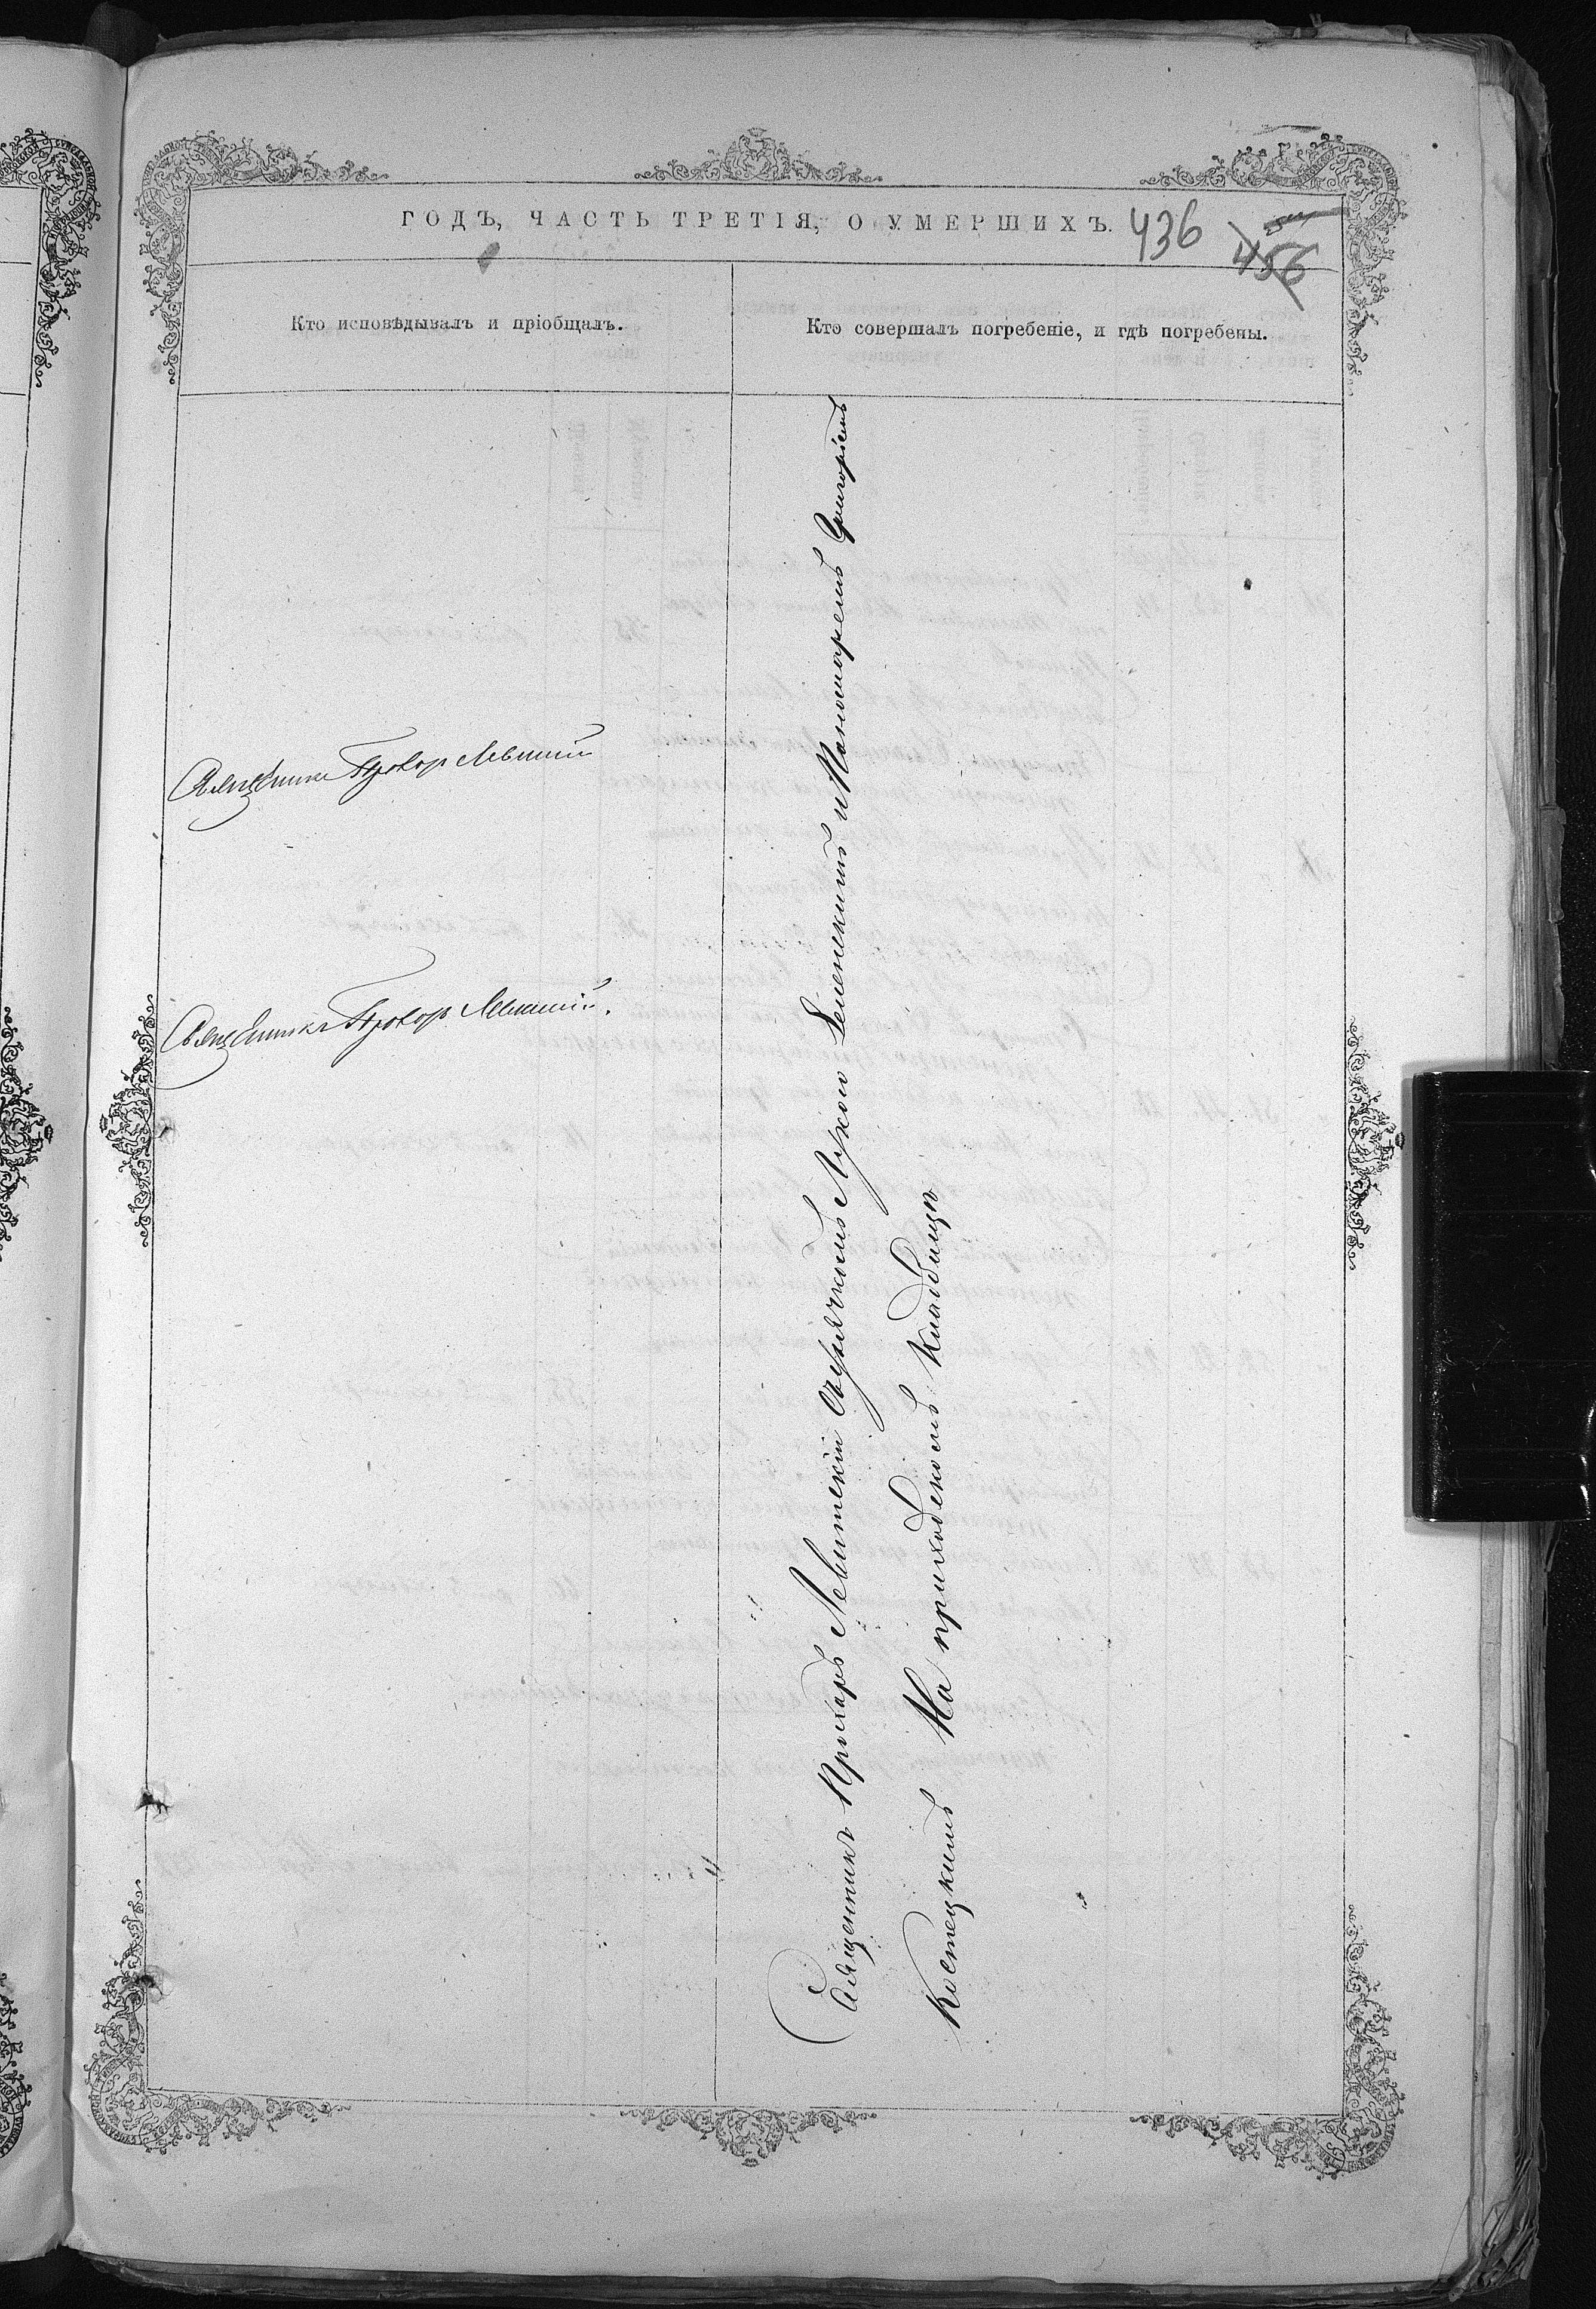 ГОДЪ, ЧАСТЬ ТРЕТІЯ, О УМЕРШИХЪ.
436
456
Кто исповѣдывалъ и пріобщалъ.
Кто совершалъ погребеніе, и гдѣ погребены.
Священникъ Прохор
Священникъ Прохор
Священникъ Прохоръ Левитскій съ дьячкомъ Лукою Зеленскимъ и Пономаремъ Григоріемъ
Костецкимъ На приходскомъ кладбищѣ